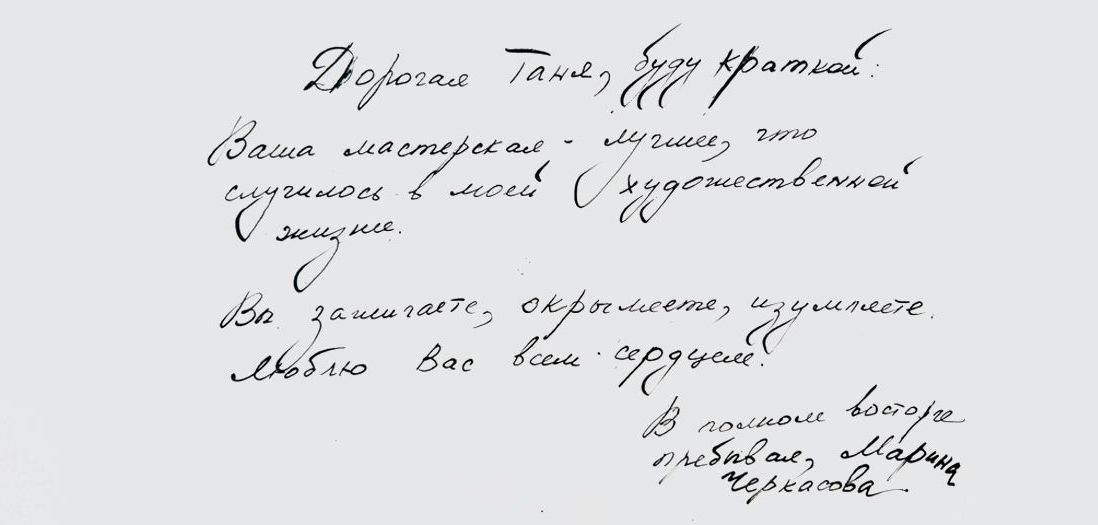 Дорогая Таня, буду краткой:
Ваша мастерская - лучшее, что
случилось в моей художественной
жизни.
Вы зажигаете, окрыляете, изумляете.
Люблю Вас всем сердцем.
В полном восторге
пребывая, Марина
Черкасова